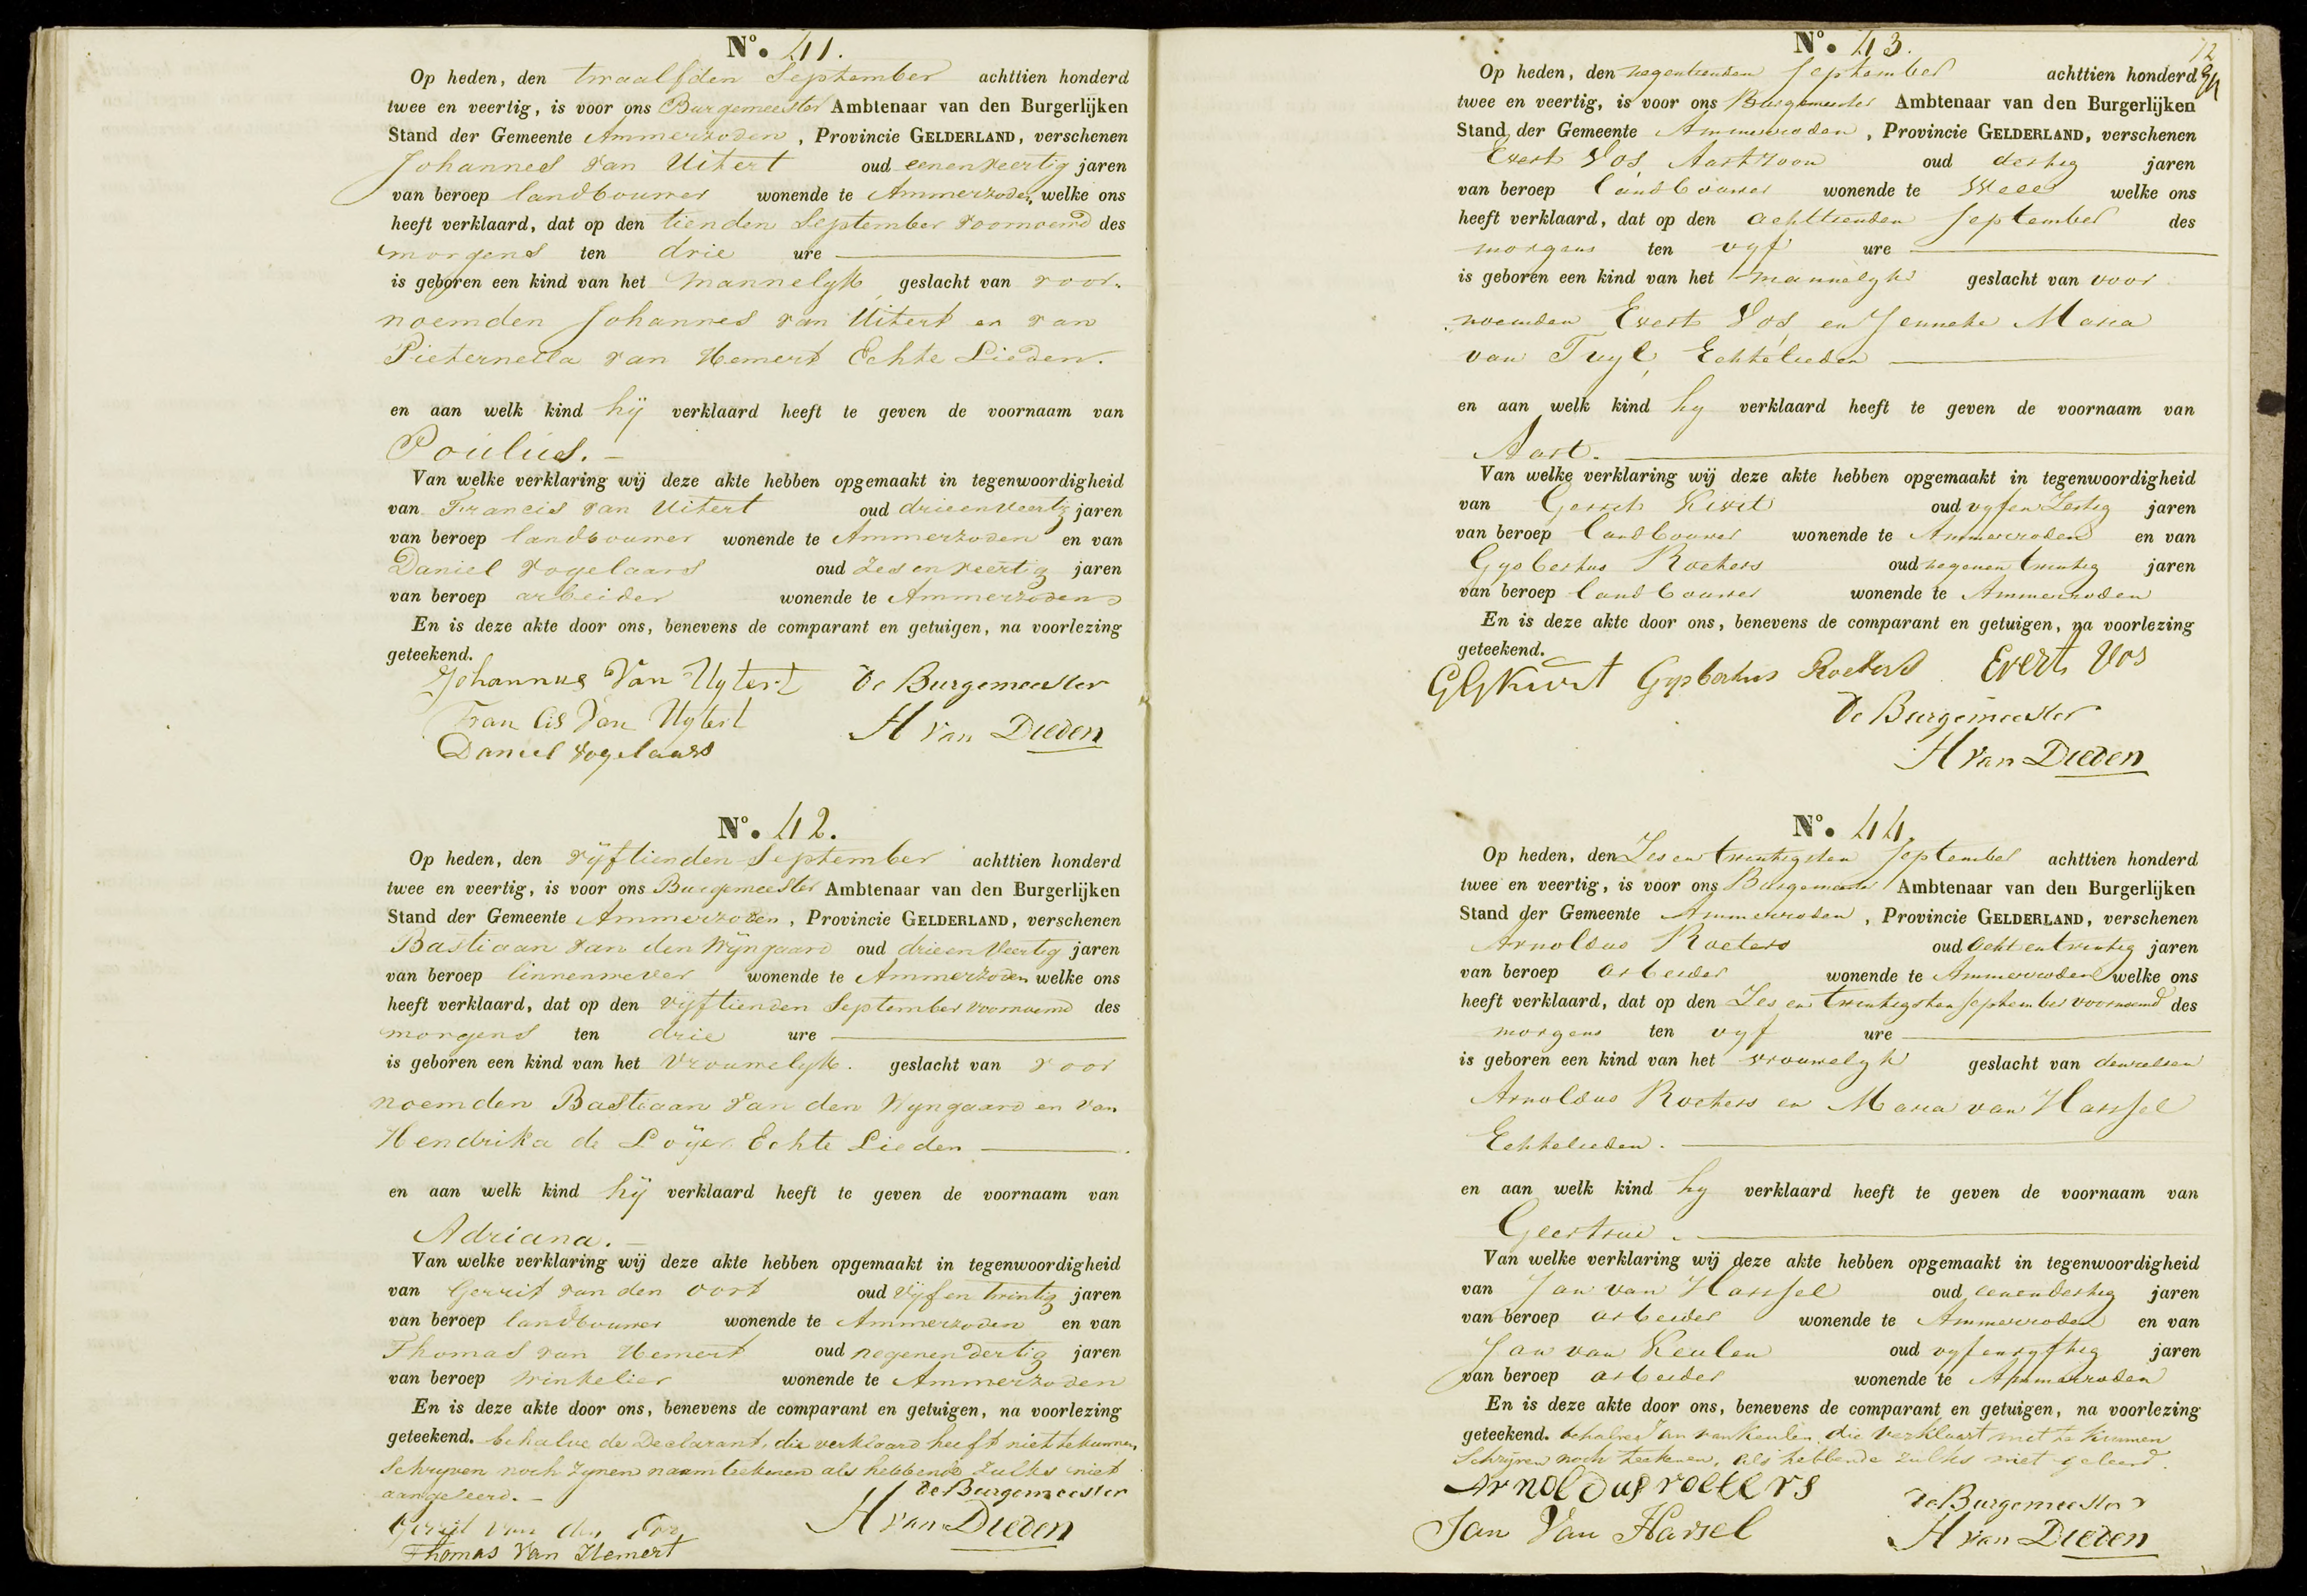 N.º 41.
Op heden, den twaalfden September achttien honderd
twee en veertig, is voor ons Burgemeester Ambtenaar van den Burgerlijken
Stand der Gemeente Ammerzoden, Provincie GELDERLAND, verschenen
Johannes van Uitert oud eenenveertig jaren
van beroep landbouwer wonende te Ammerzoden, welke ons
heeft verklaard, dat op den tienden September voornoemd des
morgens ten drie ure
is geboren een kind van het mannelyk geslacht van voor-
noemden Johannes van Uitert en van
Pieternella van Hemert Echte Lieden.
en aan welk kind hij verklaard heeft te geven de voornaam van
Poulus.
Van welke verklaring wij deze akte hebben opgemaakt in tegenwoordigheid
van Francis van Uitert oud drieenveertig jaren
van beroep landbouwer wonende te Ammerzoden en van
Daniel Vogelaars oud Zesenveertig jaren
van beroep arbeider wonende te Ammerzoden
En is deze akte door ons, benevens de comparant en getuigen, na voorlezing
geteekend.
Johannus Van Uytert De Burgemeester
Fran cis Van Uytert H van Dieden
Daniel Vogelaars
N.º 42.
Op heden, den vijftienden September achttien honderd
twee en veertig, is voor ons Burgemeester Ambtenaar van den Burgerlijken
Stand der Gemeente Ammerzoden, Provincie GELDERLAND, verschenen
Bastiaan van den Wijngaard oud drieenveertig jaren
van beroep linnenwever wonende te Ammerzoden welke ons
heeft verklaard, dat op den vijftienden September voornoemd des
morgens ten drie ure
is geboren een kind van het Vrouwelyk. geslacht van voor
noemden Bastiaan van den Wyngaard en van
Hendrika de Loijer Echte Lieden
en aan welk kind hij verklaard heeft te geven de voornaam van
Adriana.
Van welke verklaring wij deze akte hebben opgemaakt in tegenwoordigheid
van Gerrit van den Oort oud vijfentwintig jaren
van beroep landbouwer wonende te Ammerzoden en van
Thomas van Hemert oud negenendertig jaren
van beroep winkelier wonende te Ammerzoden
En is deze akte door ons, benevens de comparant en getuigen, na voorlezing
geteekend. behalve de Declarant, die verklaard heeft niet te kunnen,
Schryven noch Zynen naam teekenen als hebbende zulks niet
aangeleerd.
De Burgemeester
Gerrit van den H van Dieden
Thomas Van Hemert
N.º 43.
Op heden, den negentienden September achttien honderd
twee en veertig, is voor ons Burgemeester Ambtenaar van den Burgerlijken
Stand der Gemeente Ammerzoden, Provincie GELDERLAND, verschenen
Evert Vos, Aartzoon oud dertig jaren
van beroep landbouwer wonende te Well welke ons
heeft verklaard, dat op den achttienden September des
morgens ten vyf ure
is geboren een kind van het mannelyk geslacht van voor
noemden Evert Vos en Jenneke Maria
van Tuyl, Echtelieden
en aan welk kind hy verklaard heeft te geven de voornaam van
Aart.
Van welke verklaring wij deze akte hebben opgemaakt in tegenwoordigheid
van Gerrit Kivit oud vyfenZestig jaren
van beroep landbouwer wonende te Ammerzoden en van
Gysbertus Roeters oud negenentwintig jaren
van beroep landbouwer wonende te Ammerzoden
En is deze akte door ons, benevens de comparant en getuigen, na voorlezing
geteekend.
Gysbertus Roeters Evert Vos
De Burgemeester
H van Dieden
N.º 44.
Op heden, den Zes en twintigsten September achttien honderd
twee en veertig, is voor ons Burgemeester Ambtenaar van den Burgerlijken
Stand der Gemeente Ammerzoden, Provincie GELDERLAND, verschenen
Arnoldus Roeters oud achtentwintig jaren
van beroep arbeider wonende te Ammerzoden welke ons
heeft verklaard, dat op den Zes en twintigsten September voornoemd des
morgens ten vyf ure
is geboren een kind van het vrouwelyk geslacht van denzelven
Arnoldus Roeters en Maria van Harssel
Echtelieden.
en aan welk kind hy verklaard heeft te geven de voornaam van
Geertrui.
Van welke verklaring wij deze akte hebben opgemaakt in tegenwoordigheid
van Jan van Harssel oud eenendertig jaren
van beroep arbeider wonende te Ammerzoden en van
Jan van Keulen oud vyfenvyftig jaren
van beroep arbeider wonende te Ammerzoden
En is deze akte door ons, benevens de comparant en getuigen, na voorlezing
geteekend. behalve Jan van Keulen, die verklaart niet te kunnen
Schrijven noch teekenen, als hebbende zulks niet geleerd.
Arnoldus roeters De Burgemeester
Jan Van Harsel H van Dieden